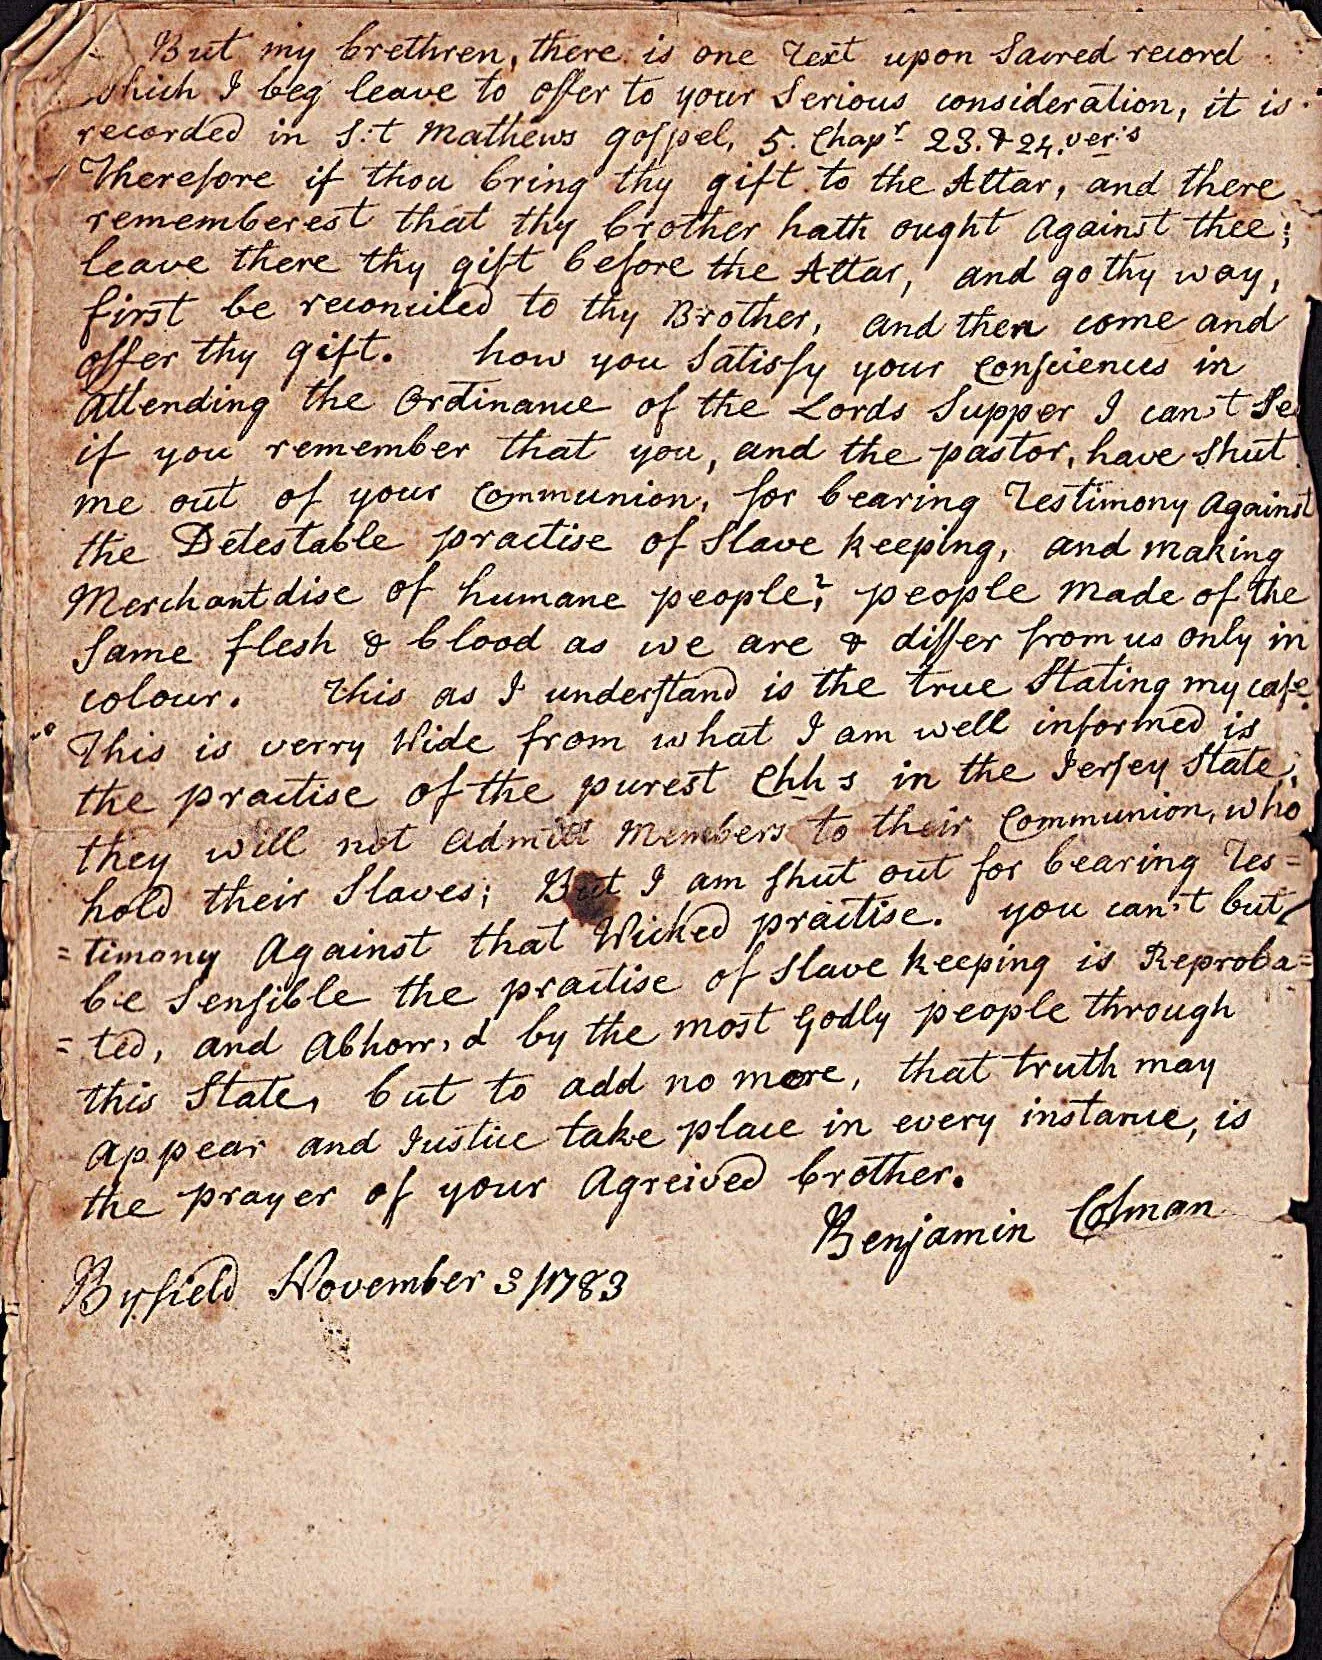 But my brethren, there is one Text upon Sacred record
which I beg leave to offer to your Serious consideration, it is
recorded in S:t Mathews gospel, 5. Chapr 23. & 24. ver:s
Therefore if thou bring thy gift to the Altar, and there
rememberest that thy brother hath ought against thee;
leave there thy gift before the Altar, and go thy way,
first be reconciled to thy Brother, and then come and
offer thy gift. how you Satisfy your Consciences in
attending the Ordinance of the Lords Supper I can't Se
if you remember that you, and the pastor, have Shut
me out of your Communion, for bearing Testimony Against
the Detestable practise of Slave keeping, and making
Merchantdise of humane people? people made of the
Same flesh & blood as we are & differ from us only in
colour. This as I understand is the true Stating my case.
This is verry Wide from what I am well informed is
the practise of the purest Chhs in the Jersey State,
they will not admitt Members to their Communion, who
hold their Slaves; But I am Shut out for bearing Tes=
=timony Against that Wicked practise. you can't but
be Sensible the practise of Slave keeping is Reproba=
=ted, and Abhorr'd by the most Godly people through
this State, but to add no more, that truth may
appear and Justice take place in every instance, is
the prayer of your Agreived brother.
Benjamin Colman
Byfield November 3/1783